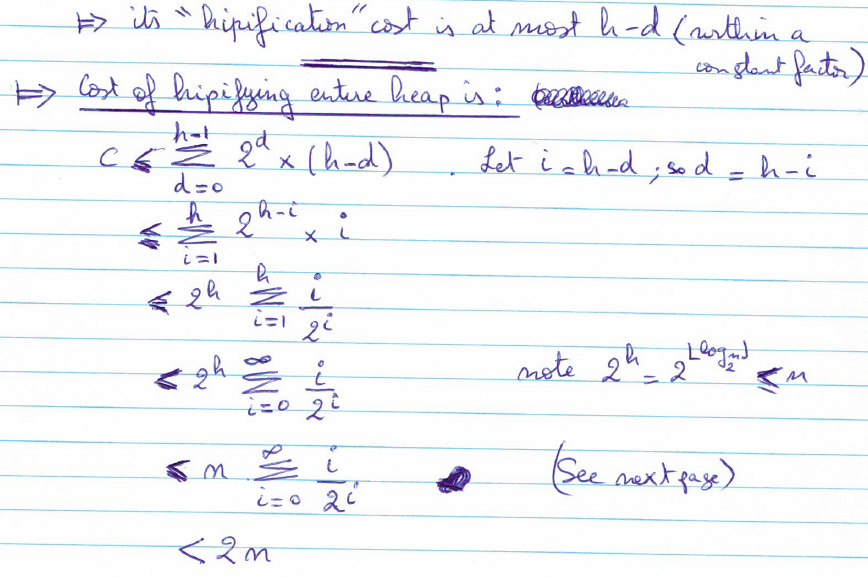 ⇒ its "hipification" cost is at most h-d (within a
constant factor)
⇒ Cost of hipifying entire heap is:
C ≤ ∑_{d=0}^{h-1} 2^d × (h-d) . Let i = h-d ; so d = h-i
≤ ∑_{i=1}^{h} 2^{h-i} × i
≤ 2^h ∑_{i=1}^{h} i/2^i
≤ 2^h ∑_{i=0}^{∞} i/2^i note 2^h = 2^{⌊log_2 n⌋} ≤ n
≤ n ∑_{i=0}^{∞} i/2^i (See next page)
< 2n